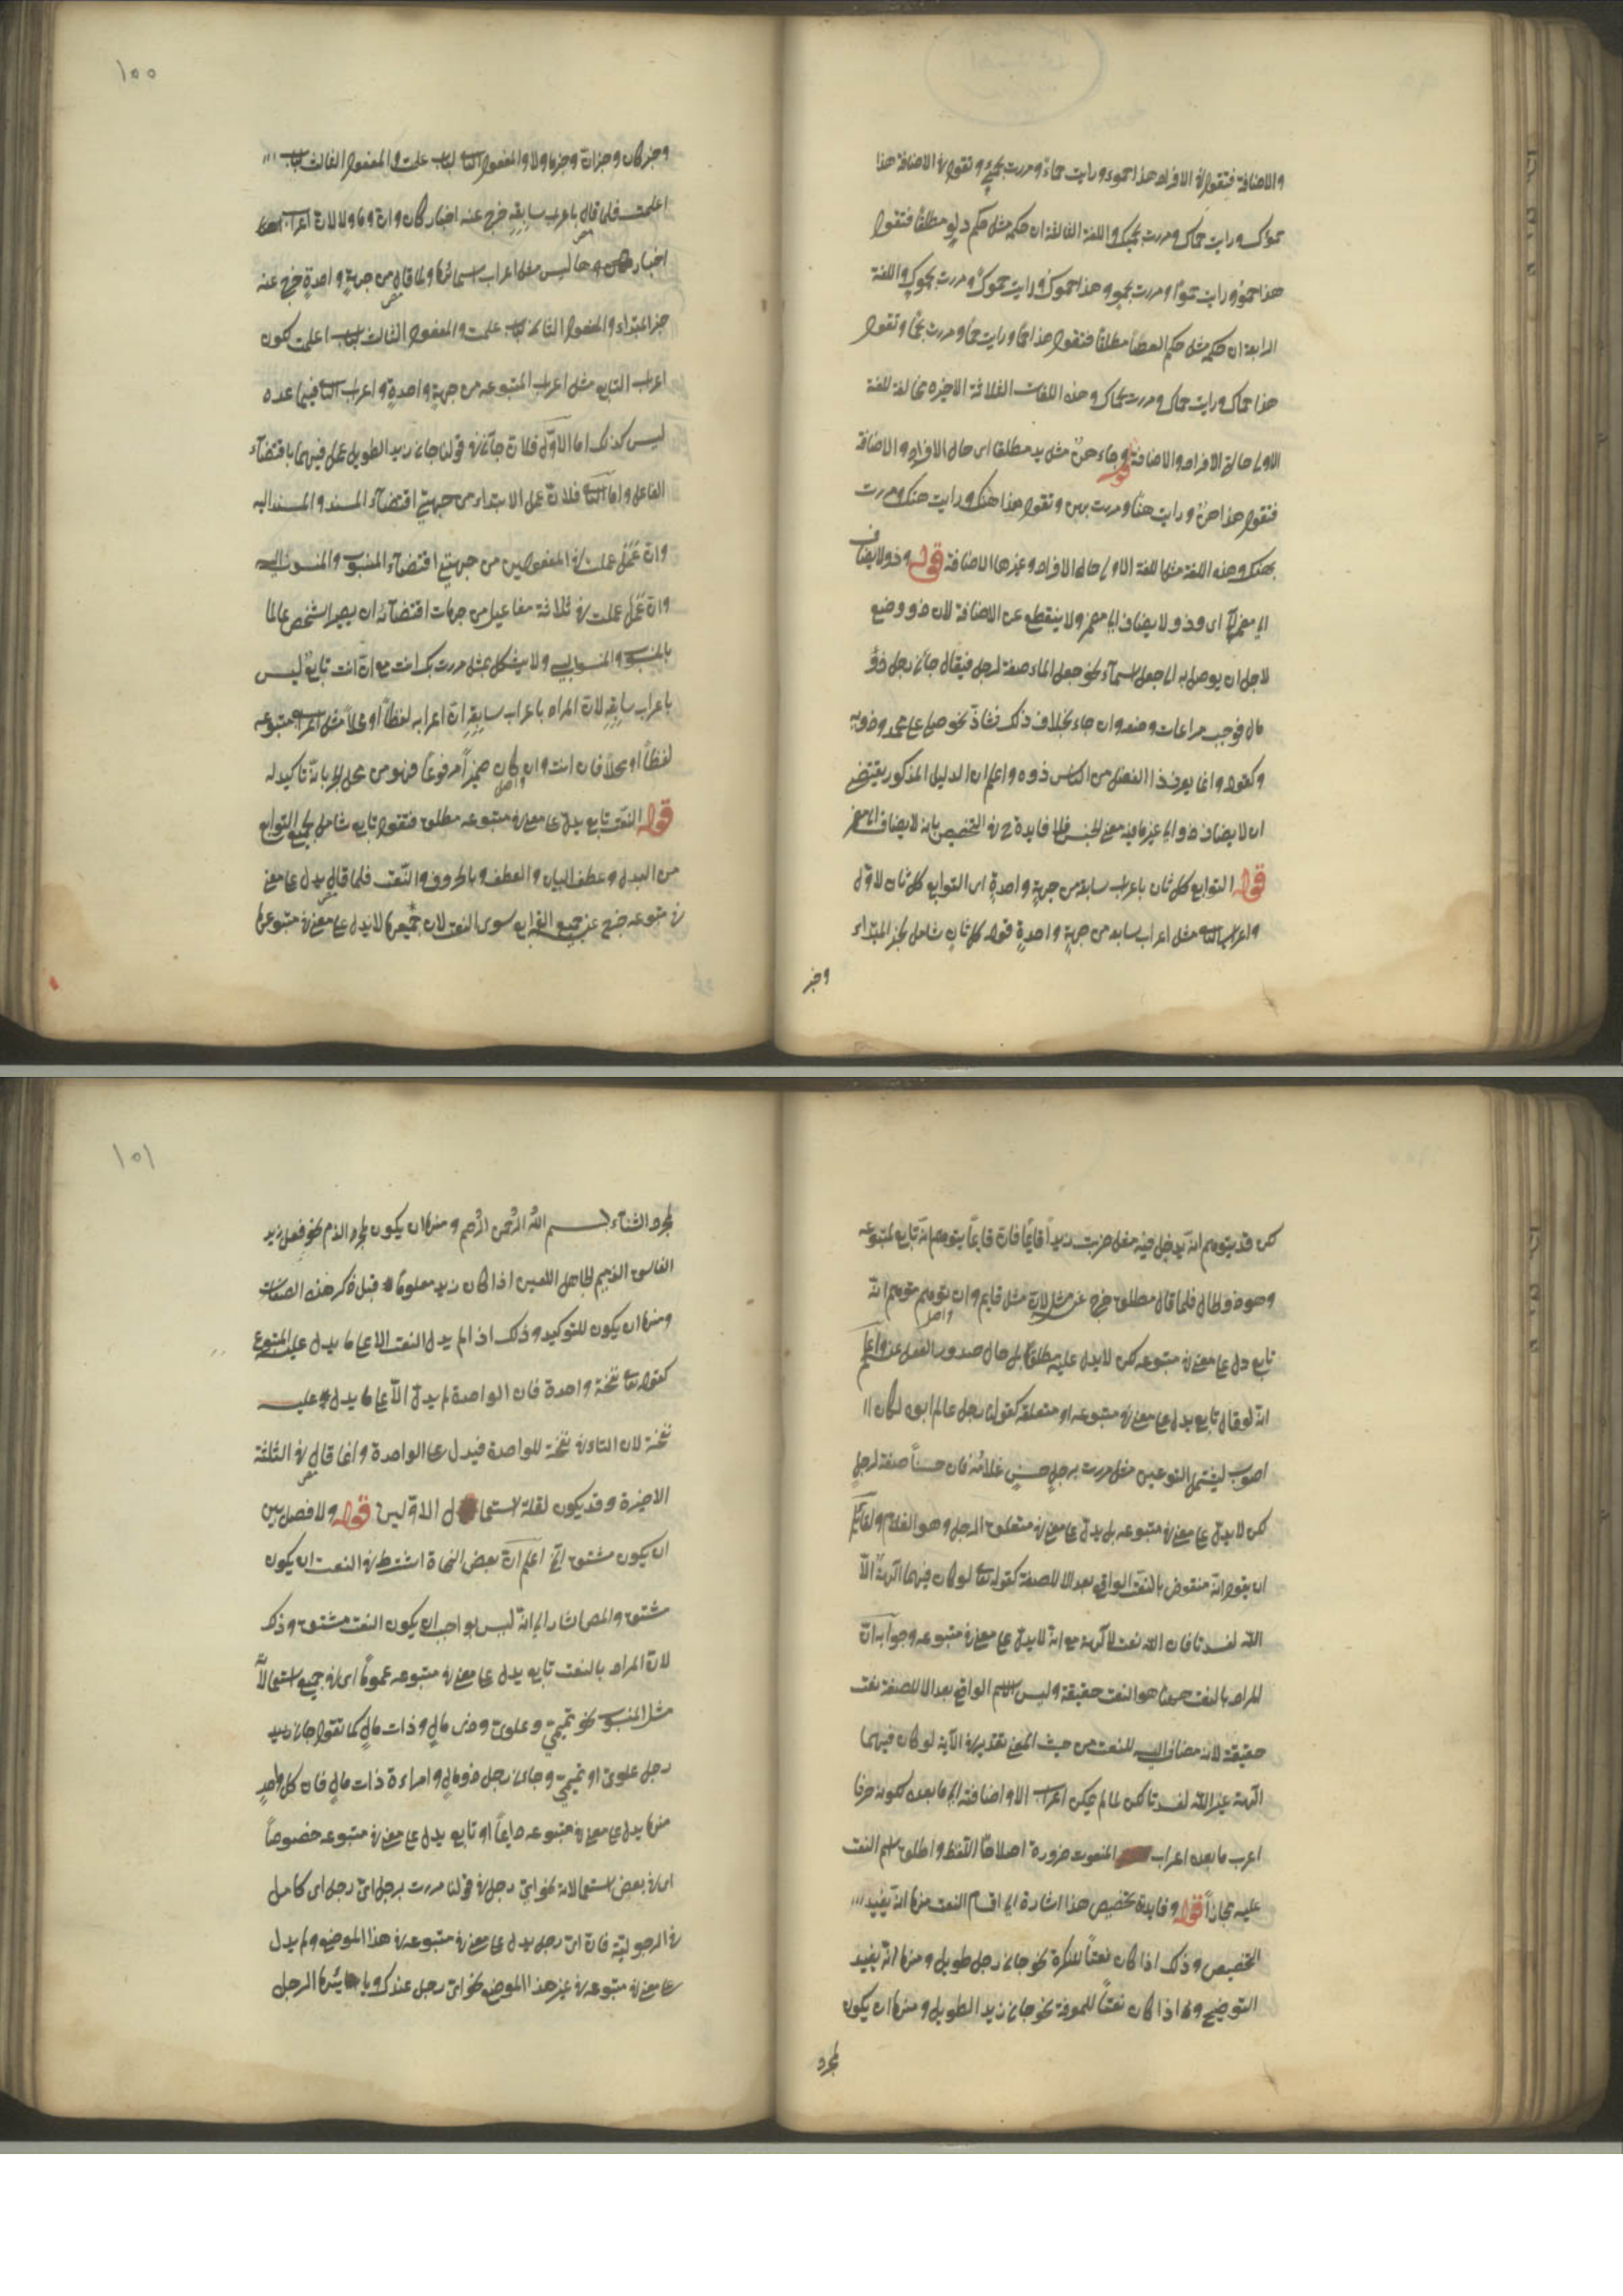 والاضافة فتقول فى الافراد هذا حموء ورايت حماء ومررت بحمئ وتقول فى الاضافة هذا
حموك ورايت حماك ومررت بحميك واللغة الثالثة ان حكمه مثل حكم دلو مطلقا فتقول
هذا حمو ورايت حموا ومررت بحمو وهذا حموك ورايت حموك ومررت بحموك واللغة
الرابعة ان حكمه مثل حكم العصا مطلقا فتقول هذا حما ورايت حما ومررت بحما وتقول
هذا حماك ورايت حماك ومررت بحماك وهذه اللغات الثلاثة الاخيره مخالفة للغة
الاولى حالة الافراد والاضافة قوله وجاء هن مثل يد مطلقا اى حال الافراد والاضافة
فتقول هذا هن ورايت هنا ومررت بهن وتقول هذا هنك ورايت هنك ومررت
بهنك وهذه اللغة مثل اللغة الاولى حالى الافراد وغيرها الاضافة قوله وذو لا يضاف
الى مضمر اى وذو لا يضاف الى مضمر ولا ينقطع عن الاضافة لان ذو وضع
لاجل ان يوصل به الى جعل اسماء نحو جعل الماء صفة لرجل فيقال جانى رجل ذو
مال فوجب مراعات وضعه وان جاء بخلاف ذلك فشاذ نحو صلى على محمد وذويه
وكقوله وانما يعرف ذا الفضل من الناس ذوه واعلم ان الدليل المذكور يقتضى
ان لا يضاف ذو الى غير ما فيه معنى الجنس فلا فايدة فى التخصيص بانه لا يضاف الى مضمر
قوله التوابع كل ثان باعراب سابقه من جهة واحدة اى التوابع كل ثان لاول
واعراب الثانى مثل اعراب سابقه من جهة واحدة قوله كل ثان شامل لخبر المبتداء
وخبر
١٠٠
وخبر كان وخبر ان وخبر ما ولا والمفعول الثانى لباب علمت والمفعول الثالث لباب
اعلمت فلما قال باعراب سابقه خرج عنه اخبار كان وان وما ولا لان اعراب
اخبار ليس مثل اعراب اسمائها ولما قال من جهة واحدة خرج عنه
خبر المبتداء والمفعول الثانى لباب علمت والمفعول الثالث لباب اعلمت لكون
اعراب التابع مثل اعراب المتبوعه من جهة واحدة واعراب الثانى فيما عده
ليس كذلك اما الاول فلان جانى فى قولنا جانى زيد الطويل عمل فيهما باقتضاء
الفاعل واما الثانى فلان عمل الابتداء من جهتى اقتضاء المسند والمسند اليه
وان عمل علمت فى المفعولين من جهتى اقتضاء المنسوب والمنسوب اليه
وان عمل علمت فى ثلاثة مفاعيل من جهات اقتضائه ان يصير الشخص عالما
بالمنسوب والمنسوب اليه ولا يشكل بمثل مررت بك انت مع ان انت تابع ليس
باعراب سابقه لان المراد باعراب سابقه ان اعرابه لفظا او محلا مثل اعراب متبوعه
لفظا او محلا فان انت وان كان ضميرا مرفوعا فهو من محل الجر بانه تاكيد له
قوله النعت تابع يدل على معنى فى متبوعه مطلق فتقول تابع شامل لجميع التوابع
من البدل وعطف البيان والعطف وبالحروف والنعت فلما قال يدل على معنى
فى متبوعه خرج عنه جميع التوابع سوى النعت لان جميعها لا يدل على معنى فى متبوعها
لكن قد يتوهم انه يدخل فيه مثل ضربت زيدا قايما فان قايما يتوهم انه تابع لمتبوعه
وهو ذو الحال فلما قال مطلق خرج عن مثل لان مثل قايم وان توهم متوهم انه
تابع دل على معنى فى متبوعه لكن لا يدل عليه مطلقا بل حال صدور الفعل عنه واعلم
انه لو قال تابع يدل على معنى فى متبوعه او متعلقه كقولك رجل عالم ابوه لكان
اصوب ليشمل النوعين مثل مررت برجل حسن غلامه فان حسنا صفة لرجل
لكن لا يدل على معنى فى متبوعه بل يدل على معنى فى متعلق الرجل وهو الغلام ولقايل
ان يقول انه منقوض بالنعت الواقع بعد الا للصفة كقوله تعالى لو كان فيهما آلهة الا
الله لفسدتا فان الله نعت لآلهة مع انه لا يدل على معنى فى متبوعه وجوابه ان
المراد بالنعت ههنا هو النعت حقيقة وليس الاسم الواقع بعد الا للصفة نعت
حقيقة لانه مضاف اليه للنعت من حيث المعنى تقديره فى الآية لو كان فيهما
آلهة غير الله لفسدتا لكن لما لم يمكن اعراب الا واضافته الى ما بعده لكونه حرفا
اعرب ما بعده اعراب المنعوت ضرورة اصلاحا للفظ واطلق اسم النعت
عليه مجازا قوله وفايدة تخصيص هذا اشارة الى اقسام النعت منها انه يفيد
التخصيص وذلك اذا كان نعتا للنكرة نحو جانى رجل طويل ومنها انه يفيد
التوضيح وله اذا كان نعتا للمعرفة نحو جانى زيد الطويل ومنها ان يكون
لمجرد
١٠١
لمجرد الثناء بسم الله الرحمن الرحيم ومنها ان يكون لمجرد الذم نحو فعل زيد
الفاسق الذميم الجاهل اللعين اذا كان زيد معلوما قبل ذكر هذه الصفات
ومنها ان يكون للتوكيد وذلك اذا لم يدل النعت الا على ما يدل عليه المتبوع
كقوله تعالى نفخة واحدة فان الواحدة لم يدل الا على ما يدل عليه
نفخة لان التاء فى نفخة للواحدة فيدل على الواحدة وانما قال فى الثلثة
الاخيرة وقد يكون لقلة استعمال الاولين قوله ولا فصل بين
ان يكون مشتق الخ اعلم ان بعض النحاة اشترط فى النعت ان يكون
مشتق والمص اشار الى انه ليس بواجب ان يكون النعت مشتق وذلك
لان المراد بالنعت تابع يدل على معنى فى متبوعه عموما اى فى جميع استعمالاته
مثل المنسوب نحو تميمى وعلوى وذى مال وذات مال كما تقول جانى زيد
رجل علوى او تميمى وجانى رجل ذو مال وامراءة ذات مال فان كل واحد
منها يدل على معنى فى متبوعه دايما او تابع يدل على معنى فى متبوعه خصوصا
اى فى بعض استعمالاته نحو اى رجل فى قولنا مررت برجل اى رجل اى كامل
فى الرجولية فان اى رجل يدل على معنى فى متبوعه فى هذا الموضع ولم يدل
على معنى فى متبوعه فى غير هذا الموضع نحو اى رجل عندك ويا ايها الرجل